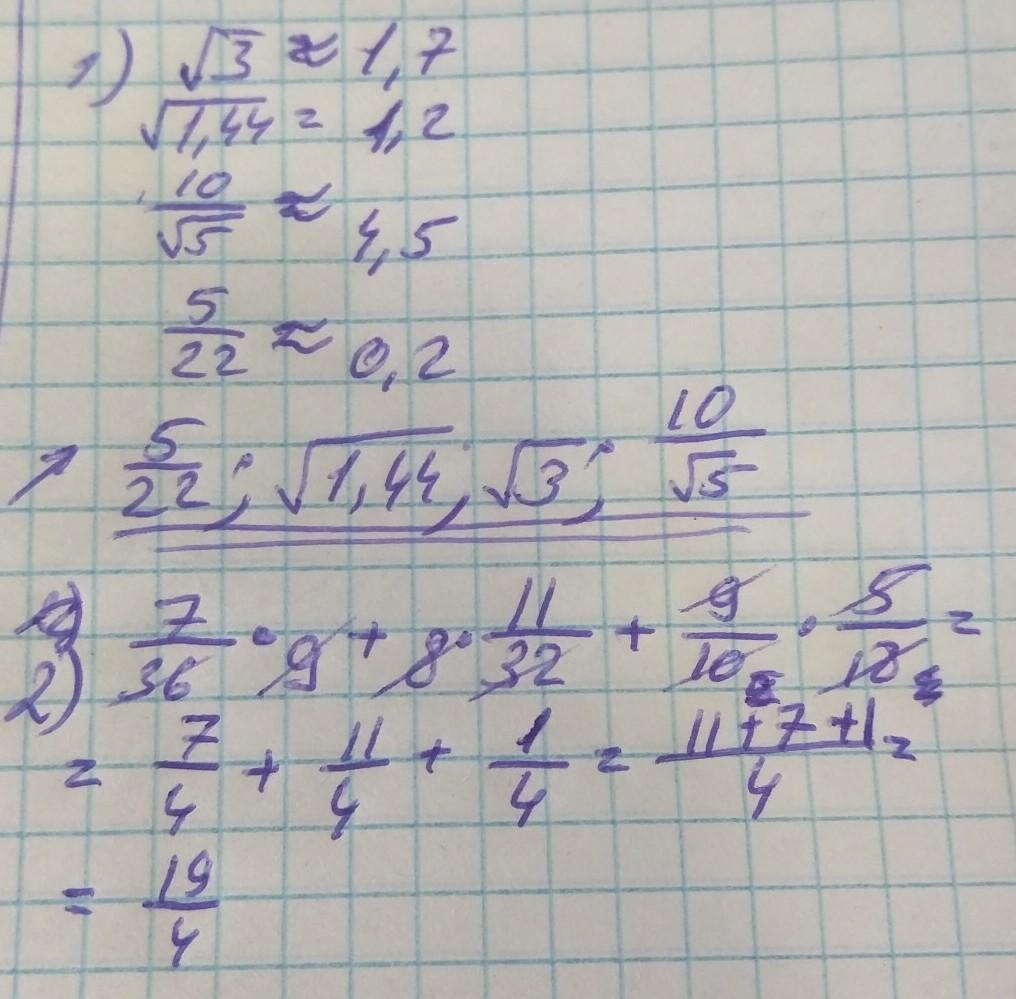 1) √3 ≈ 1,7
√1,44 = 1,2
10/√5 ≈ 4,5
5/22 ≈ 0,2
↗ 5/22; √1,44; √3; 10/√5
2) 7/36 · 9 + 8 · 11/32 + 9/10 · 5/18 =
= 7/4 + 11/4 + 1/4 = (11+7+1)/4 =
= 19/4